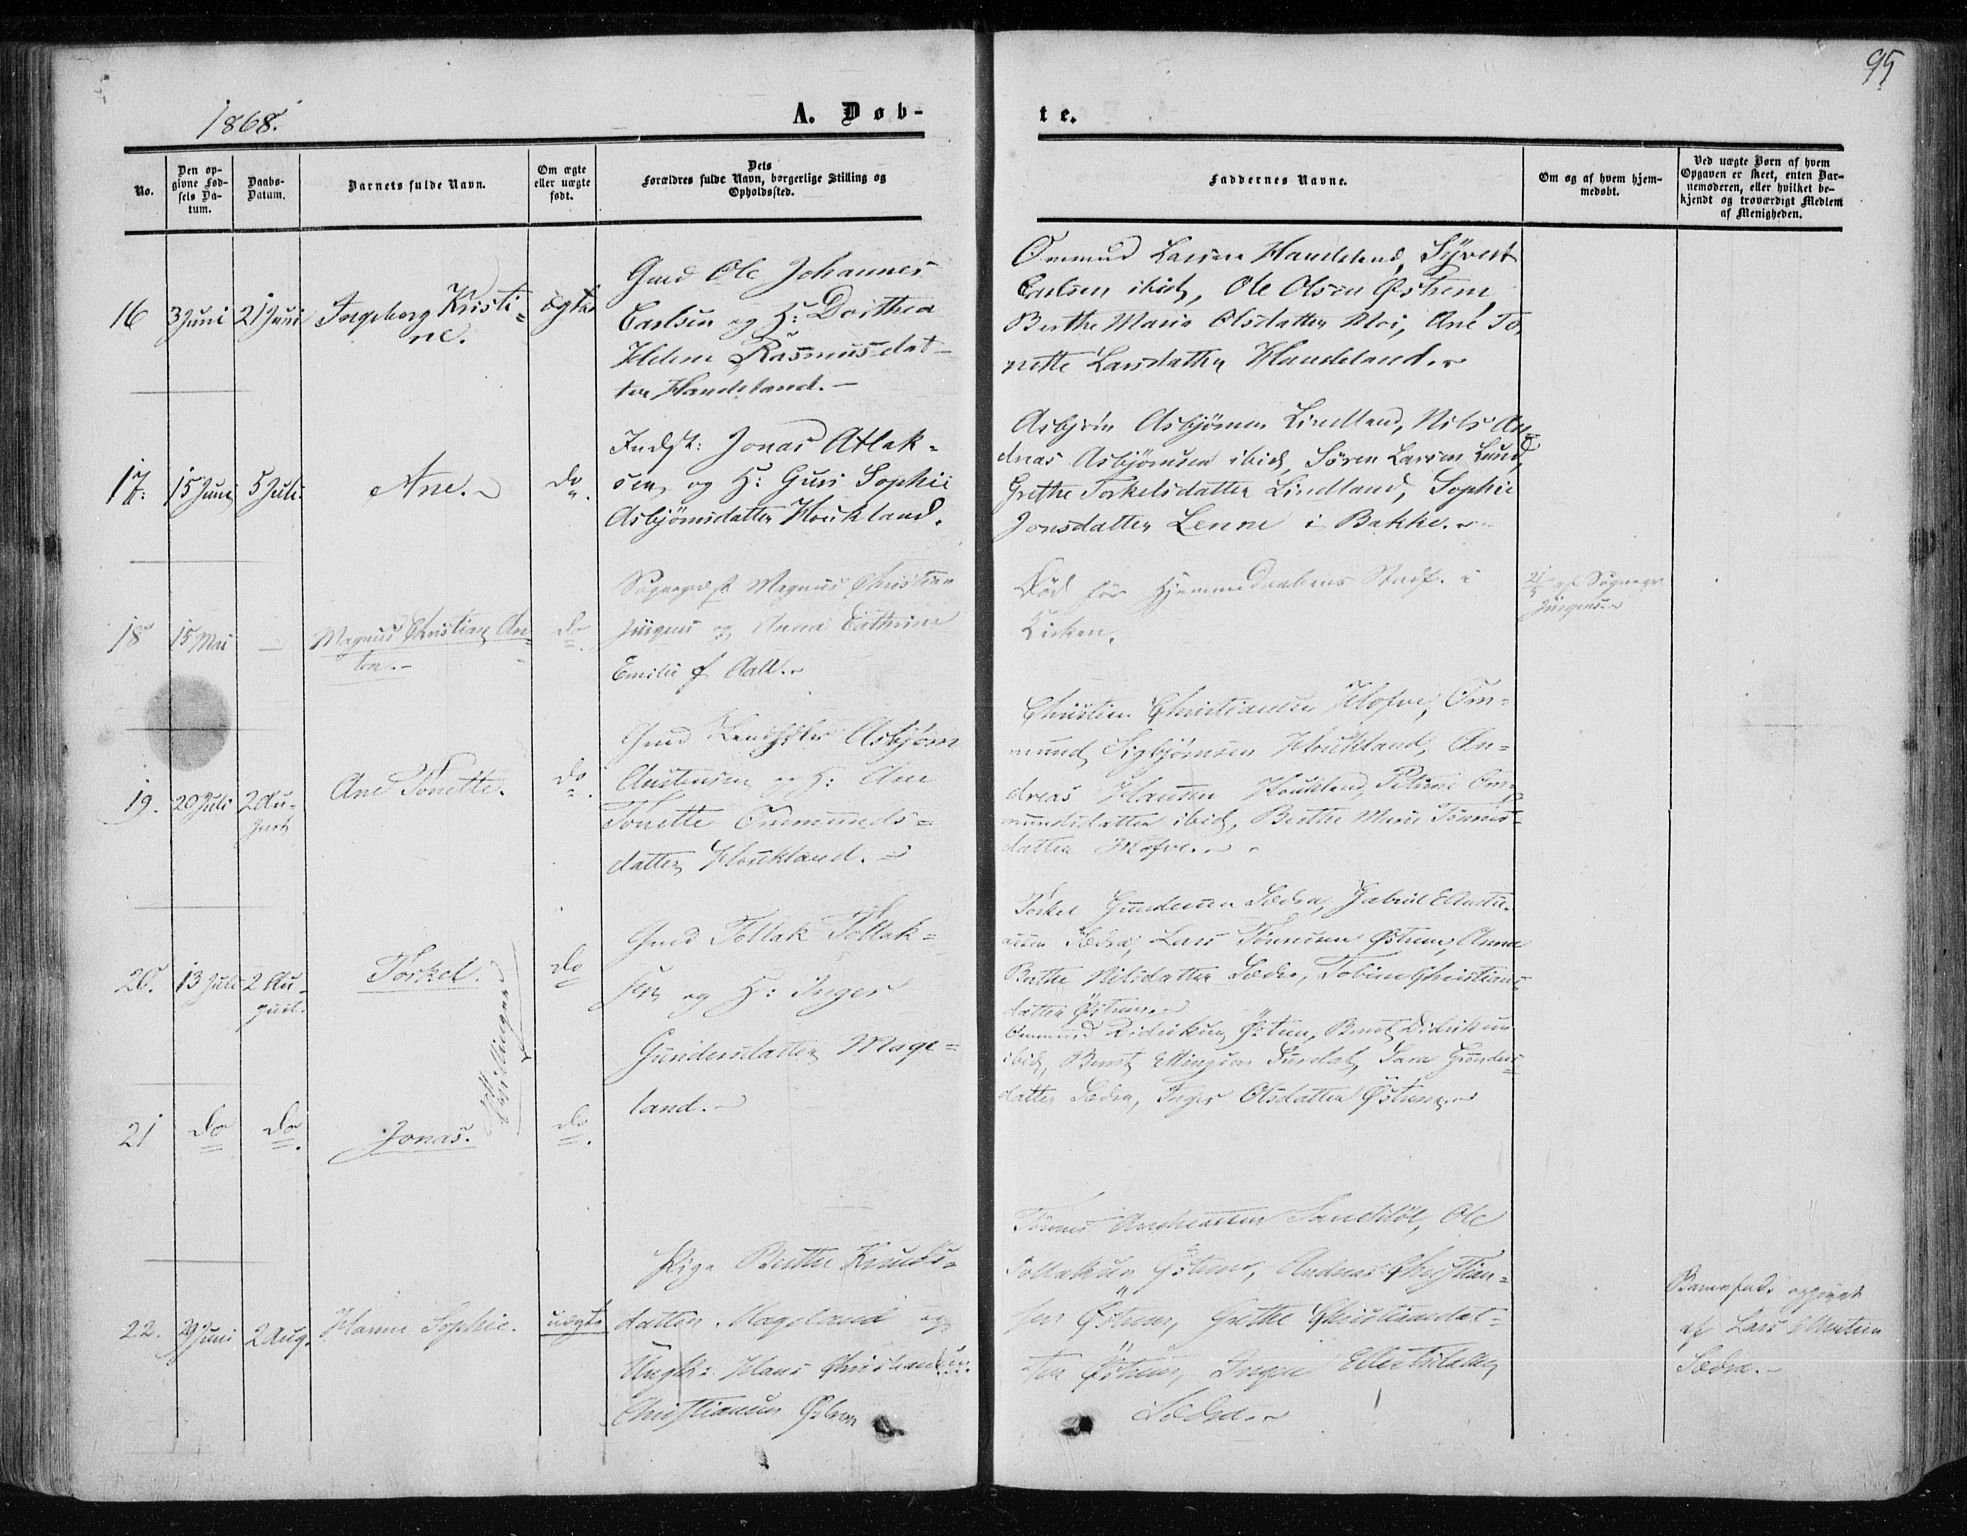 95
1868.
A. Døb-
te.
No.
Den op-
givne Fød-
sels Da-
tum.
Daabs-
Datum.
Barnets fulde Navn.
Om ægte
eller uægte
født.
Dets
Forældres fulde Navn, borgerlige Stilling og
Opholdssted.
Faddernes Navne.
Om og af hvem hjem-
medøbt.
Ved uægte Børn af hvem
Opgaven er skeet, enten Bar-
nemoderen, eller hvilket be-
kjendt og troværdigt Medlem
af Menigheden.
16
3 Juni
21 Juni
Ingeborg Kristi-
ne.
ægte
Gmd Ole Johannes
Carlsen og H: Dorthea
Helene Rasmusdat-
ter Handeland.
Ommund Larsen Handeland, Syvert
Carlsen ibid, Ole Olsen Østrem,
Berthe Marie Olsdatter Moi, Ane To-
nette Larsdatter Handeland.
17.
15 Juni
5 Juli
Ane.
do
Indst: Jonas Atlak-
sen og H: Guri Sophie
Asbjørnsdatter Houkland.
Asbjørn Asbjørnsen Lindland, Nils An-
dreas Asbjørnsen ibid, Søren Larsen Lund,
Grethe Torkelsdatter Lindland, Sophie
Jonsdatter Lenne i Bakke.
18
15 Mai
Magnus Christian An-
ton.
do
Sognepræst Magnus Christian
Jürgens og Anna Cathrine
Emilie f. Aall.
Død før Hjemmedaabens Stadf. i
Kirken.
21/5 af Sognepr
Jürgens
19.
20 Juli
2 Au-
gust
Ane Tonette.
do
Gmd Asbjørn
Austensen og H: Ane
Tonette Ommunds-
datter Houkland.
Christian Christiansen Hofve, Om-
mund Sigbjørnsen Houkland, An-
dreas Hansen Houkland, Petrine Om-
mundsdatter ibid, Berthe Marie Tønnes-
datter Hofve.
20.
13 Juli
2 Au-
gust.
Torkel.
Tvillinger
do
Gmd Tollak Tollak-
sen og H: Inger
Gundersdatter Mage-
land.
Torkel Gundersen Sædra, Gabriel
Sædra, Lars Tønnesen Østrem, Anna
Berthe Nilsdatter Sædra, Tobine Christians-
datter Østrem.
21
do
do
Jonas.
do
Ommund Didriksen Østrem, Bernt Didriksen
ibid, Bernt Surdal, Sara Gunders-
datter Sædra, Inger Olsdatter Østrem.
22.
29 Juni
2 Aug.
Hanne Sophie.
uægte
Pige Berthe Knuds-
datter Mageland og
Ungk: Hans Christian
Christiansen Østrem
Tønnes Andreassen Sandsløt, Ole
Tollaksen Østrem, Andreas Christian-
sen Østrem, Grethe Christiansdat-
ter Østrem, Inger
Sædra.
Barnefad. opgivet
af Lars
Sædra.